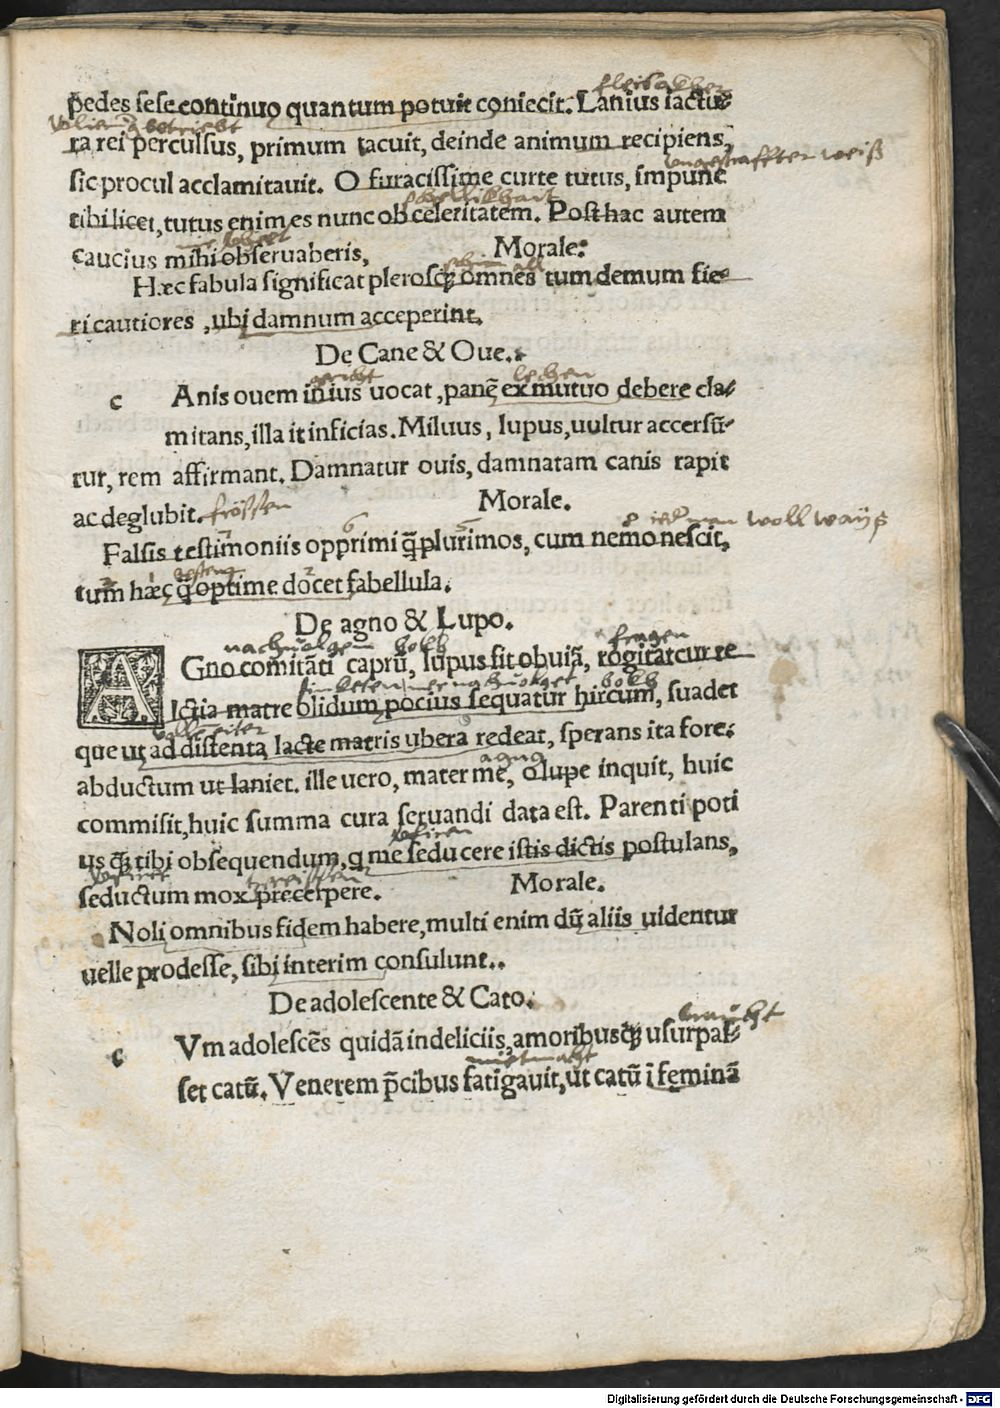 pedes sese continuo quantum potuit coniecit. Lanius iactu⸗
ra rei perculsus, primum tacuit, deinde animum recipiens,
sic procul acclamitauit. O furacissime curte tutus, impune
tibi licet, tutus enim es nunc ob celeritatem. Posthac autem
caucius mihi obseruaberis,
Morale:
Hæc fabula significat plerosq; omnes tum demum fie⸗
ri cautiores, ubi damnum acceperint.
De Cane & Oue.
c Anis ouem in ius uocat, panē ex mutuo debere cla⸗
mitans, illa it inficias. Miluus, lupus, uultur accersū⸗
tur, rem affirmant. Damnatur ouis, damnatam canis rapit
ac deglubit.
frössen
Morale.
woll wayß
Falsis testimoniis opprimi q̄plurimos, cum nemo nescit,
tum hæc q̄ optime docet fabellula.
De agno & Lupo.
fragen
AGno comitāti caprū, lupus fit obuiā, rogitat cur re
lictia matre olidum pocius sequatur hircum, suadet
que ut ad distenta lacte matris ubera redeat, sperans ita fore:
agnus
abductum ut laniet. ille uero, mater me, o lupe inquit, huic
commisit, huic summa cura seruandi data est. Parenti poti
us q; tibi obsequendum, q me seducere istis dictis postulans,
seductum mox precerpere.
Morale.
Noli omnibus fidem habere, multi enim dū aliis uidentur
uelle prodesse, sibi interim consulunt..
De adolescente & Cato.
c Vm adolescēs quidā in deliciis, amoribusq; usurpas⸗
set catū. Venerem p̄cibus fatigauit, ut catū ī feminā
Digitalisierung gefördert durch die Deutsche Forschungsgemeinschaft - DFG